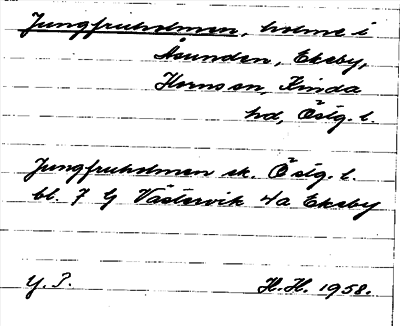 Jungfruholmen, holme i
Åsunden, Ekeby,
Hornsön, Kinda
hd, Östg. l.
Jungfruholmen ek. Östg. l.
bl. 7 G Västervik 4a Ekeby
Y. P. H. H. 1958.